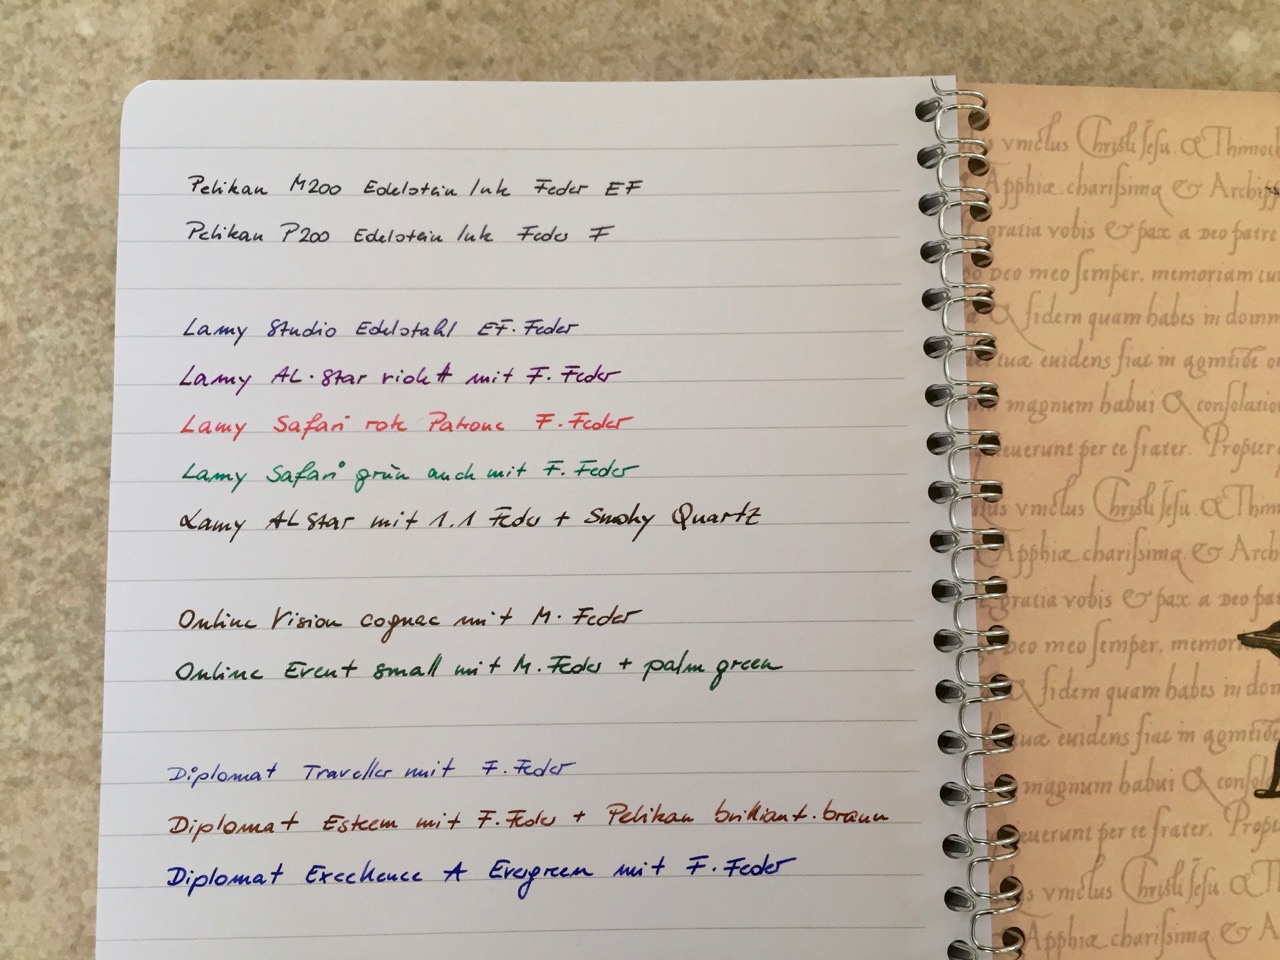 Pelikan M200 Edelstein Ink Feder EF
Pelikan P200 Edelstein Ink Feder F
Lamy Studio Edelstahl EF. Feder
Lamy AL-Star violett mit F. Feder
Lamy Safari rote Patrone F. Feder
Lamy Safari grün auch mit F. Feder
Lamy AL Star mit 1.1 Feder + Smoky Quartz
Online Vision cognac mit M. Feder
Online Event small mit M. Feder + palm green
Diplomat Traveller mit F. Feder
Diplomat Esteem mit F. Feder + Pelikan brilliant-braun
Diplomat Excellence A Evergreen mit F. Feder
vinctus Christi Jesu & Thimot
Apphiæ charissimæ & Archipp
gratia vobis & pax a Deo patre
Deo meo semper, memoriam tui
fidem quam habes in domin
tuæ euidens fiat in agnitiõe
magnum habui & consolatio
euerunt per te frater. Propter
vinctus Christi Jesu & Thim
Apphiæ charissimæ & Arch
gratia vobis & pax a Deo pa
Deo meo semper, memor
fidem quam habes in dom
tuæ euidens fiat in agnitiõe
magnum habui & consol
euerunt per te frater. Prop
vinctus Christi Jesu & T
Apphiæ charissimæ & A